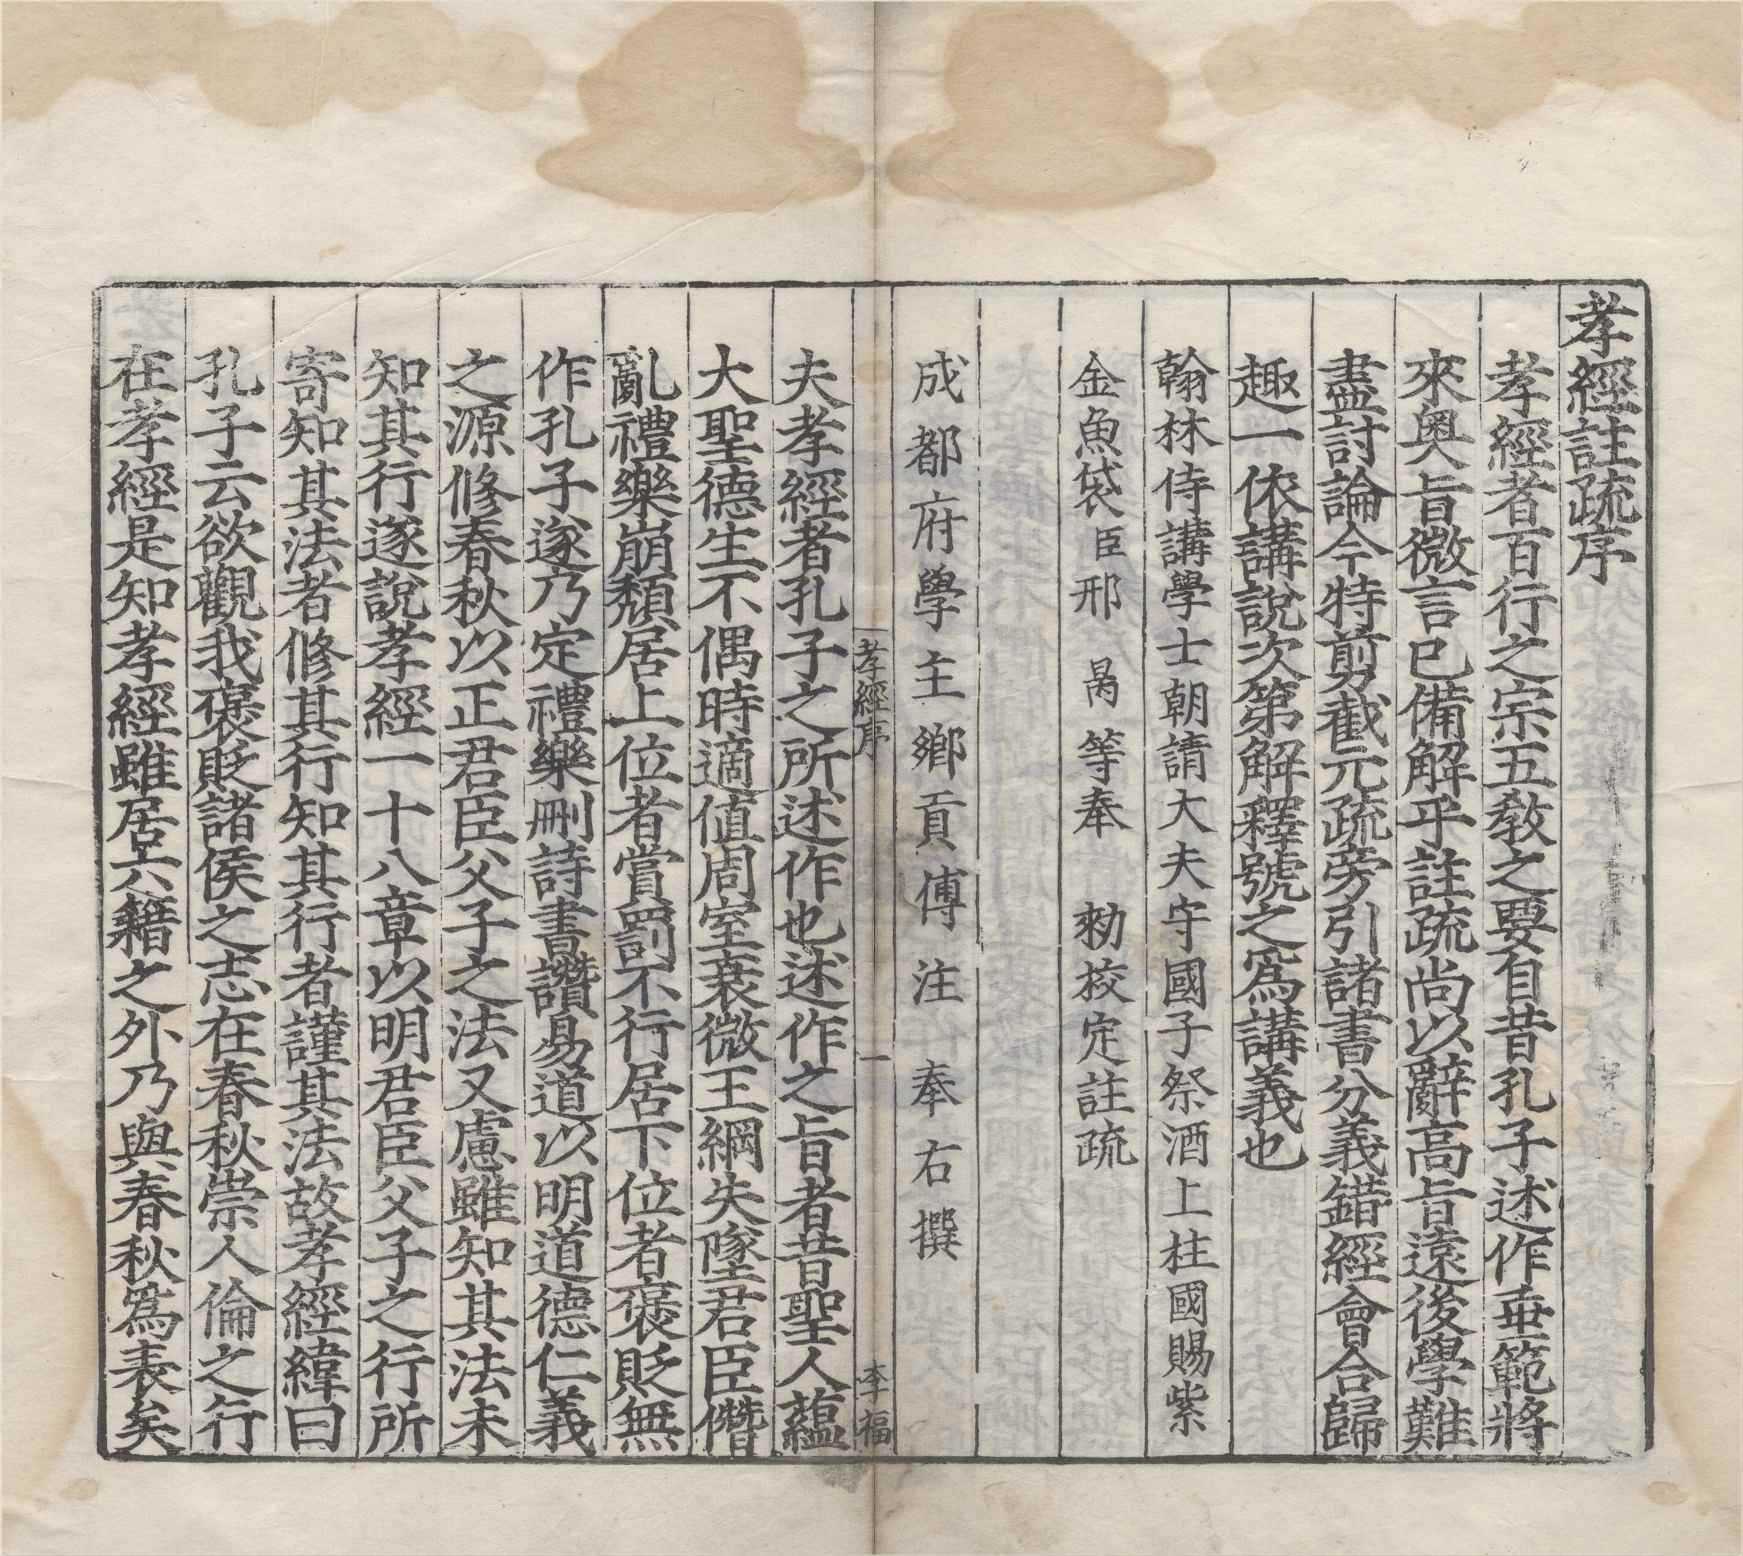 孝經註疏序
孝經者百行之宗五教之要自昔孔子述作垂範將
來奧旨微言已備解乎註疏尚以辭高旨遠後學難
盡討論今特剪截元疏旁引諸書分義錯經會合歸
趣一依講說次第解釋號之爲講義也
翰林侍講學士朝請大夫守國子祭酒上柱國賜紫
金魚袋臣邢昺等奉勑挍定註疏
成都府學主鄉貢傅注奉右撰
孝經序 一 李福
夫孝經者孔子之所述作也述作之旨者昔聖人蘊
大聖德生不偶時適値周室衰微王綱失墜君臣僭
亂禮樂崩頹居上位者賞罰不行居下位者褒貶無
作孔子遂乃定禮樂刪詩書讚易道以明道德仁義
之源修春秋以正君臣父子之法又慮雖知其法未
知其行遂說孝經一十八章以明君臣父子之行所
寄知其法者修其行知其行者謹其法故孝經緯曰
孔子云欲觀我褒貶諸侯之志在春秋崇人倫之行
在孝經是知孝經雖居六籍之外乃與春秋爲表矣